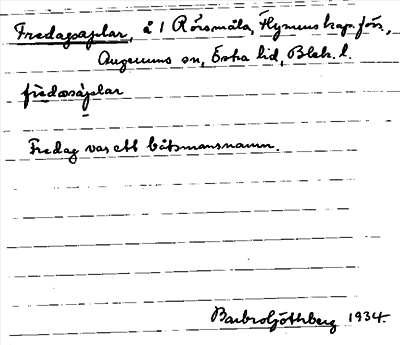 Fredagsäplar, å 1 Rörsmåla, Hynnus kap. förs.,
Augerums sn, Östra hd, Blek. l.
fredasäplar
Fredag var ett båtsmansnamn.
Barbro Göthberg 1934.